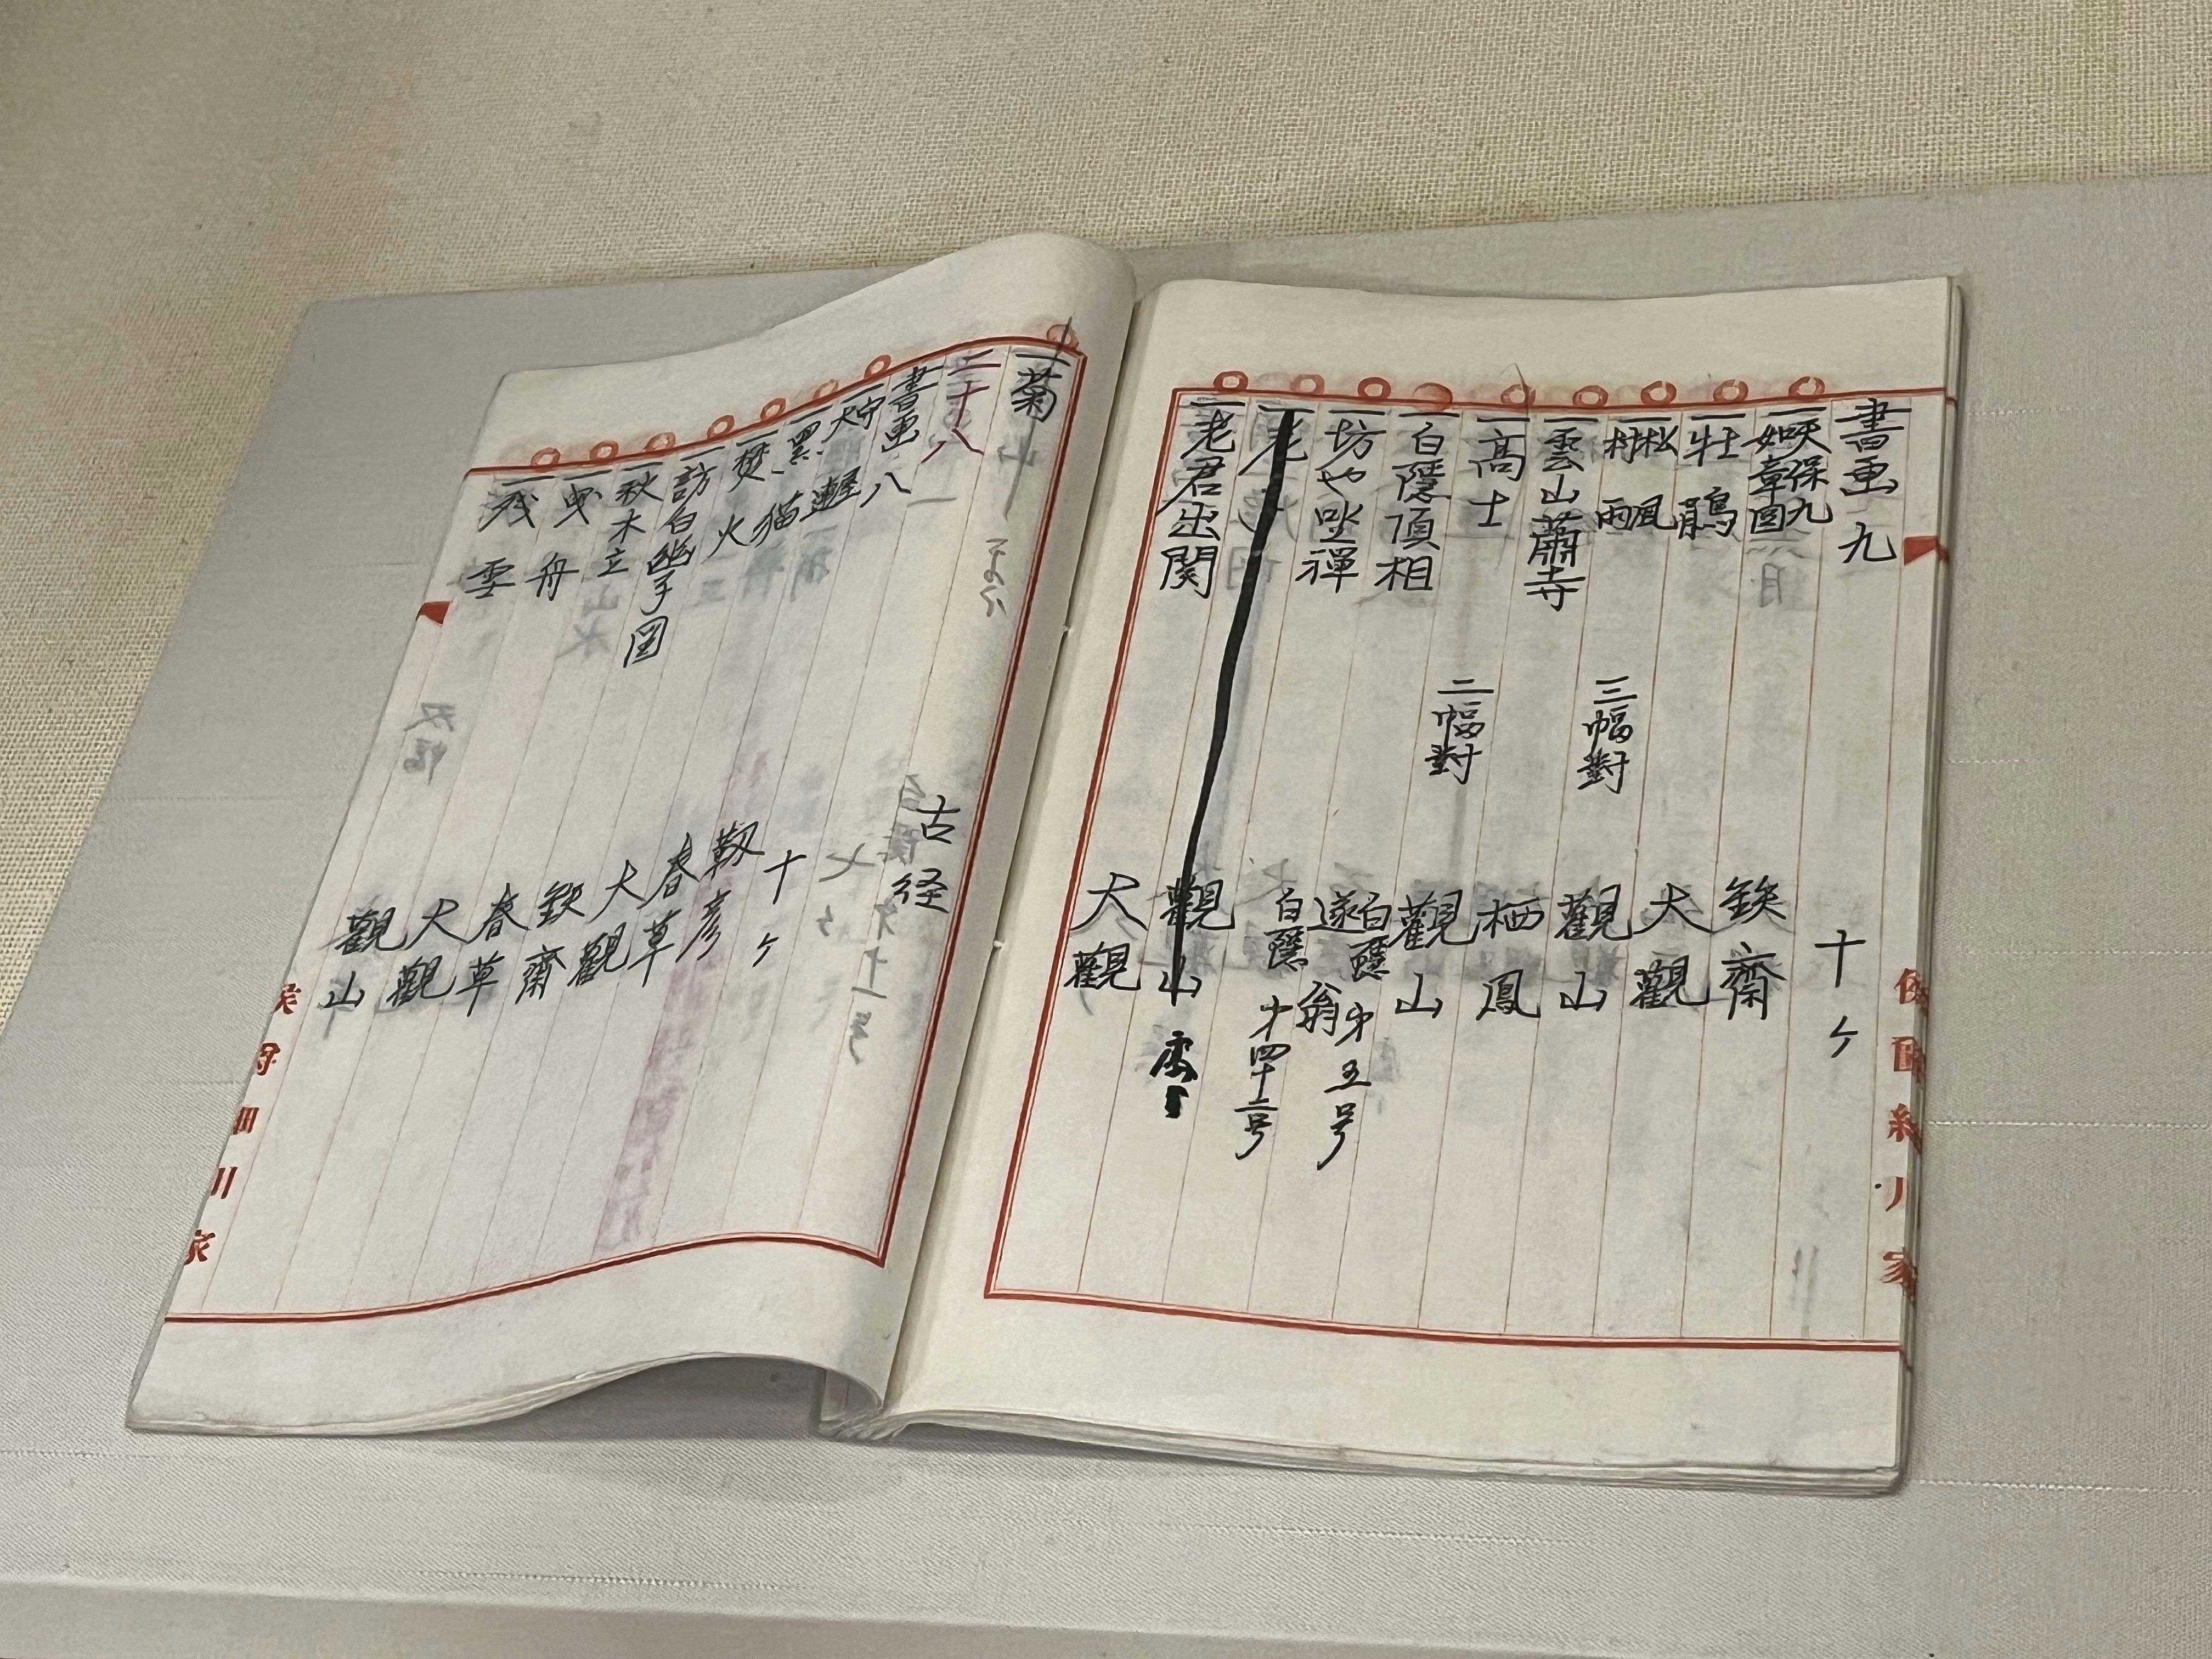 書画九 十ヶ
一天保九如章図 鉄齋
一牡鵑 大觀
一松風村雨 觀山
雲山蕭寺 三幅對 栖鳳
一高士 觀山
一白隠頂相 二幅對 白隠 第五号 遂翁
一坊や坐禅 白隠 第四十二号
一老 觀山
一老君出関 大觀
一菊 古径
二十八
書画八 十ヶ
靱彦
一黒猫 春草
一焚火 大觀
一訪白幽子図 鉄齋
一秋木立 春草
一曳舟 大觀
一残雲 觀山
侯爵細川家
侯爵細川家